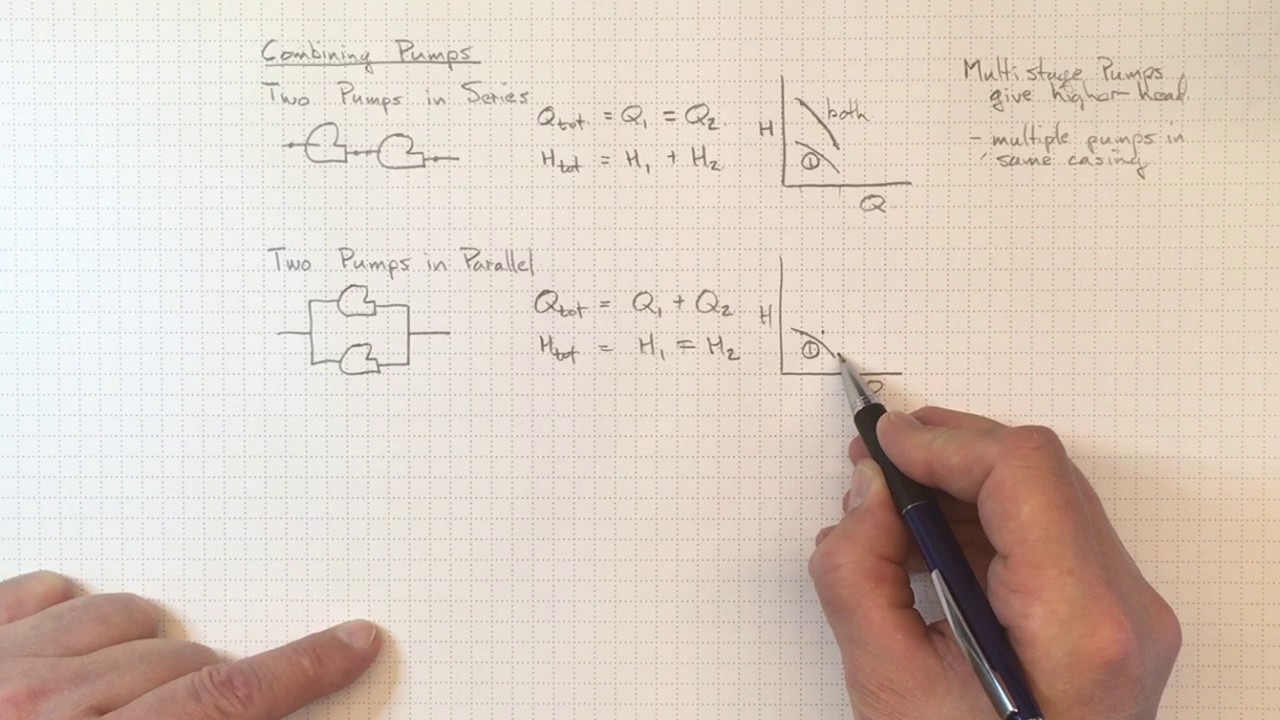 Combining Pumps
Two Pumps in Series
Qtot = Q1 = Q2
Htot = H1 + H2
H
both
①
Q
Multistage Pumps
give higher head
- multiple pumps in
same casing
Two Pumps in Parallel
Qtot = Q1 + Q2
Htot = H1 = H2
H
①